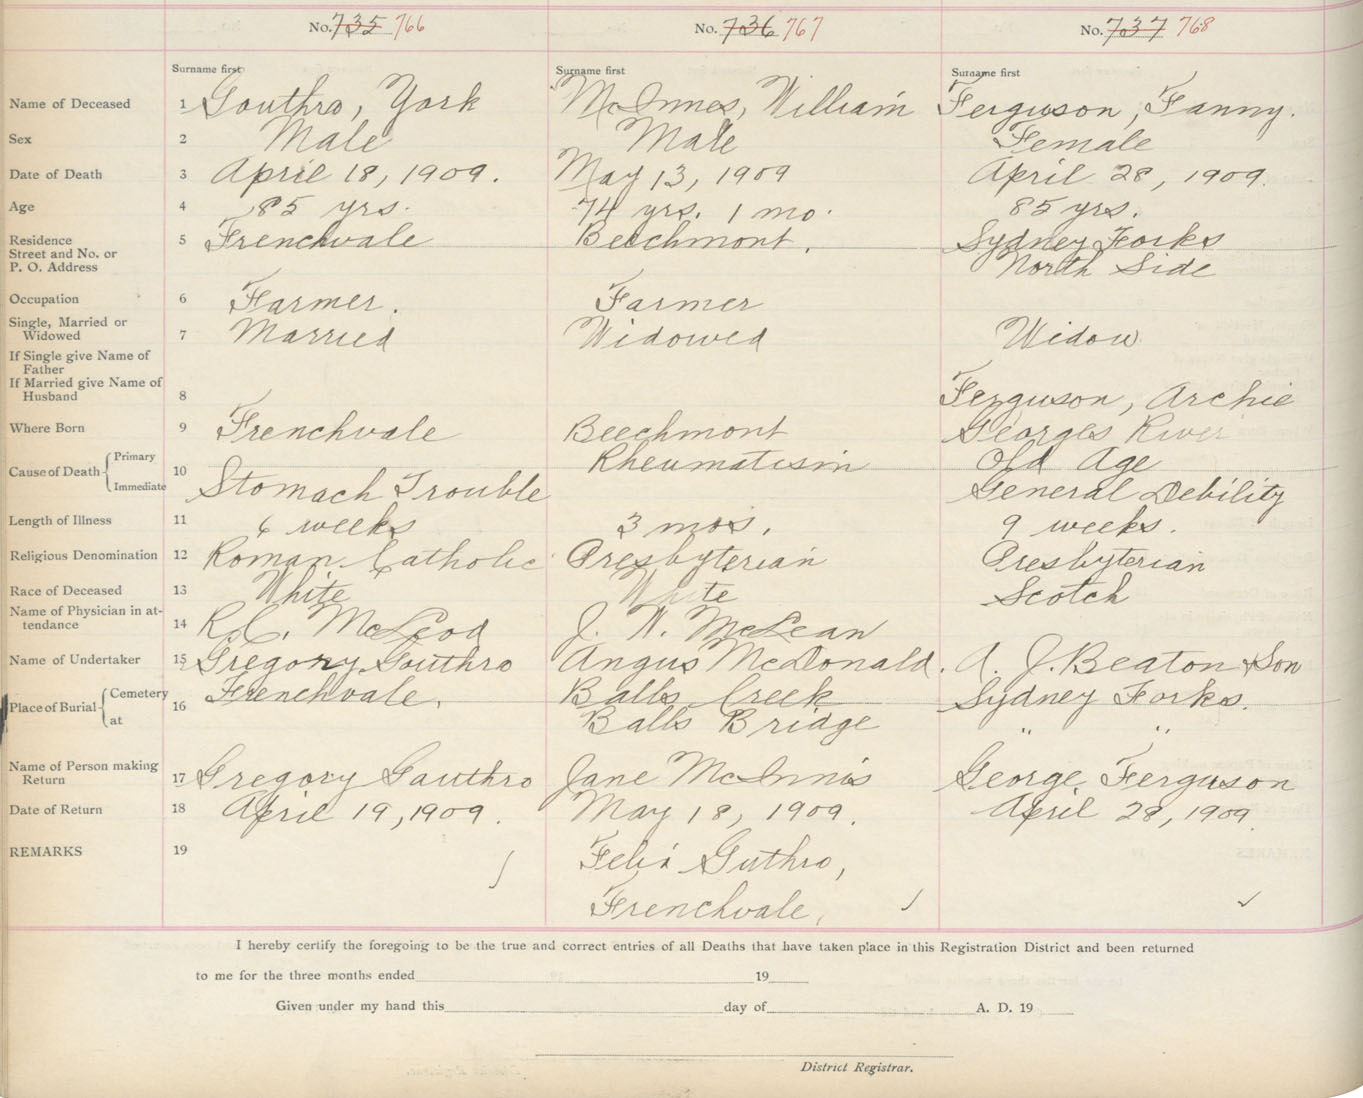 No. 735 766 No. 736 767 No. 737 768
Surname first Surname first Surname first
Name of Deceased 1 Gouthro, York McInnes, William Ferguson, Fanny.
Sex 2 Male Male Female
Date of Death 3 April 18, 1909. May 13, 1909 April 28, 1909.
Age 4 85 yrs. 74 yrs. 1 mo. 85 yrs.
Residence 5 Frenchvale Beechmont. Sydney Forks
Street and No. or
P. O. Address North Side
Occupation 6 Farmer. Farmer
Single, Married or
Widowed 7 Married Widowed Widow
If Single give Name of
Father
If Married give Name of
Husband 8 Ferguson, Archie
Where Born 9 Frenchvale Beechmont Georges River
Cause of Death 10
Primary Rheumatism Old Age
Immediate Stomach Trouble General Debility
Length of Illness 11 6 weeks 3 mos. 9 weeks.
Religious Denomination 12 Roman Catholic Presbyterian Presbyterian
Race of Deceased 13 White White Scotch
Name of Physician in at-
tendance 14 McLeod J. W. McLean
Name of Undertaker 15 Gregory Gouthro Angus McDonald. A. J. Beaton & Son
Place of Burial 16
Cemetery Frenchvale. Balls Creek Sydney Forks.
at Balls Bridge " "
Name of Person making
Return 17 Gregory Gauthro Jane McInnis George Ferguson
Date of Return 18 April 19, 1909. May 18, 1909. April 28, 1909
REMARKS 19 Guthro,
Frenchvale,
I hereby certify the foregoing to be the true and correct entries of all Deaths that have taken place in this Registration District and been returned
to me for the three months ended 19
Given under my hand this day of A. D. 19
District Registrar.